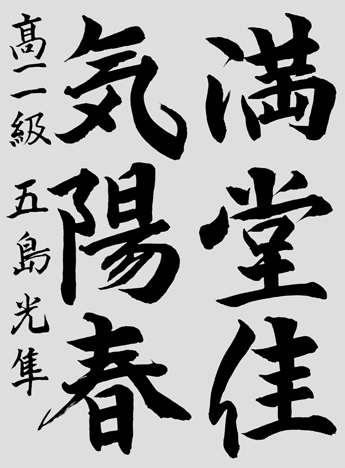 満堂佳
気陽春
高二級 五島光隼